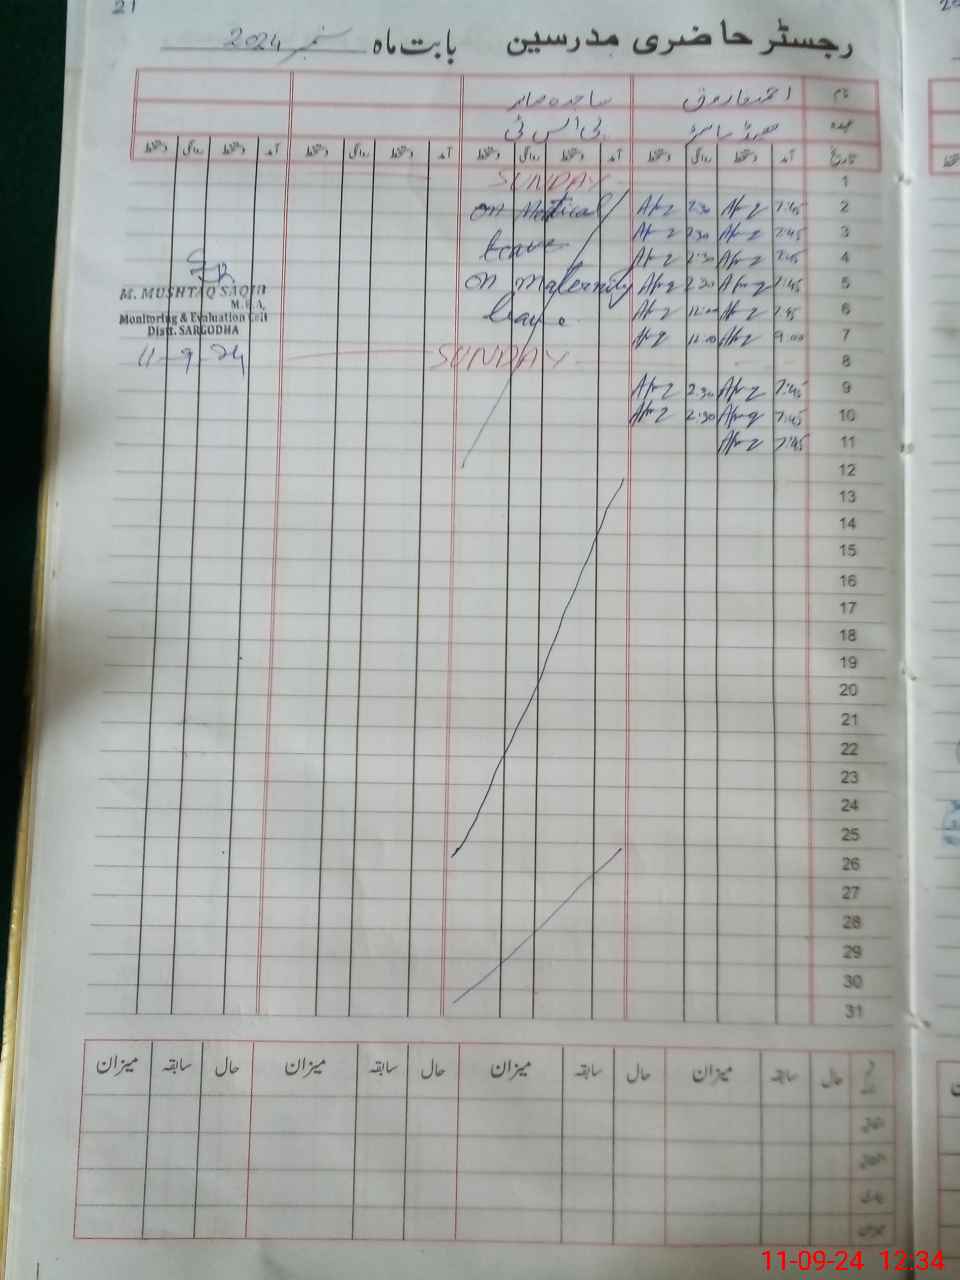 21
رجسٹر حاضری مدرسین بابت ماہ ستمبر 2024
نام احمد فاروق ساجدہ صابر
عہدہ ہیڈ ماسٹر پی ایس ٹی
تاریخ آمد دستخط روانگی دستخط آمد دستخط روانگی دستخط آمد دستخط روانگی دستخط آمد دستخط روانگی دستخط
1 SUNDAY
2 7:45 2:30 on Medical
3 7:45 2:30 leave
4 7:45 2:30
5 7:45 2:30 on maternity
6 7:45 12:00 leave.
7 9:00 12:00
8 SUNDAY
9 7:45 2:30
10 7:45 2:30
11 7:45
12
13
14
15
16
17
18
19
20
21
22
23
24
25
26
27
28
29
30
31
M. MUSHTAQ SAQIB
M.E.A,
Monitoring & Evaluation Cell
Distt. SARGODHA
11-9-24
حال سابقہ میزان حال سابقہ میزان حال سابقہ میزان حال سابقہ میزان
اتفاقی
بیماری
میزان
11-09-24 12:34